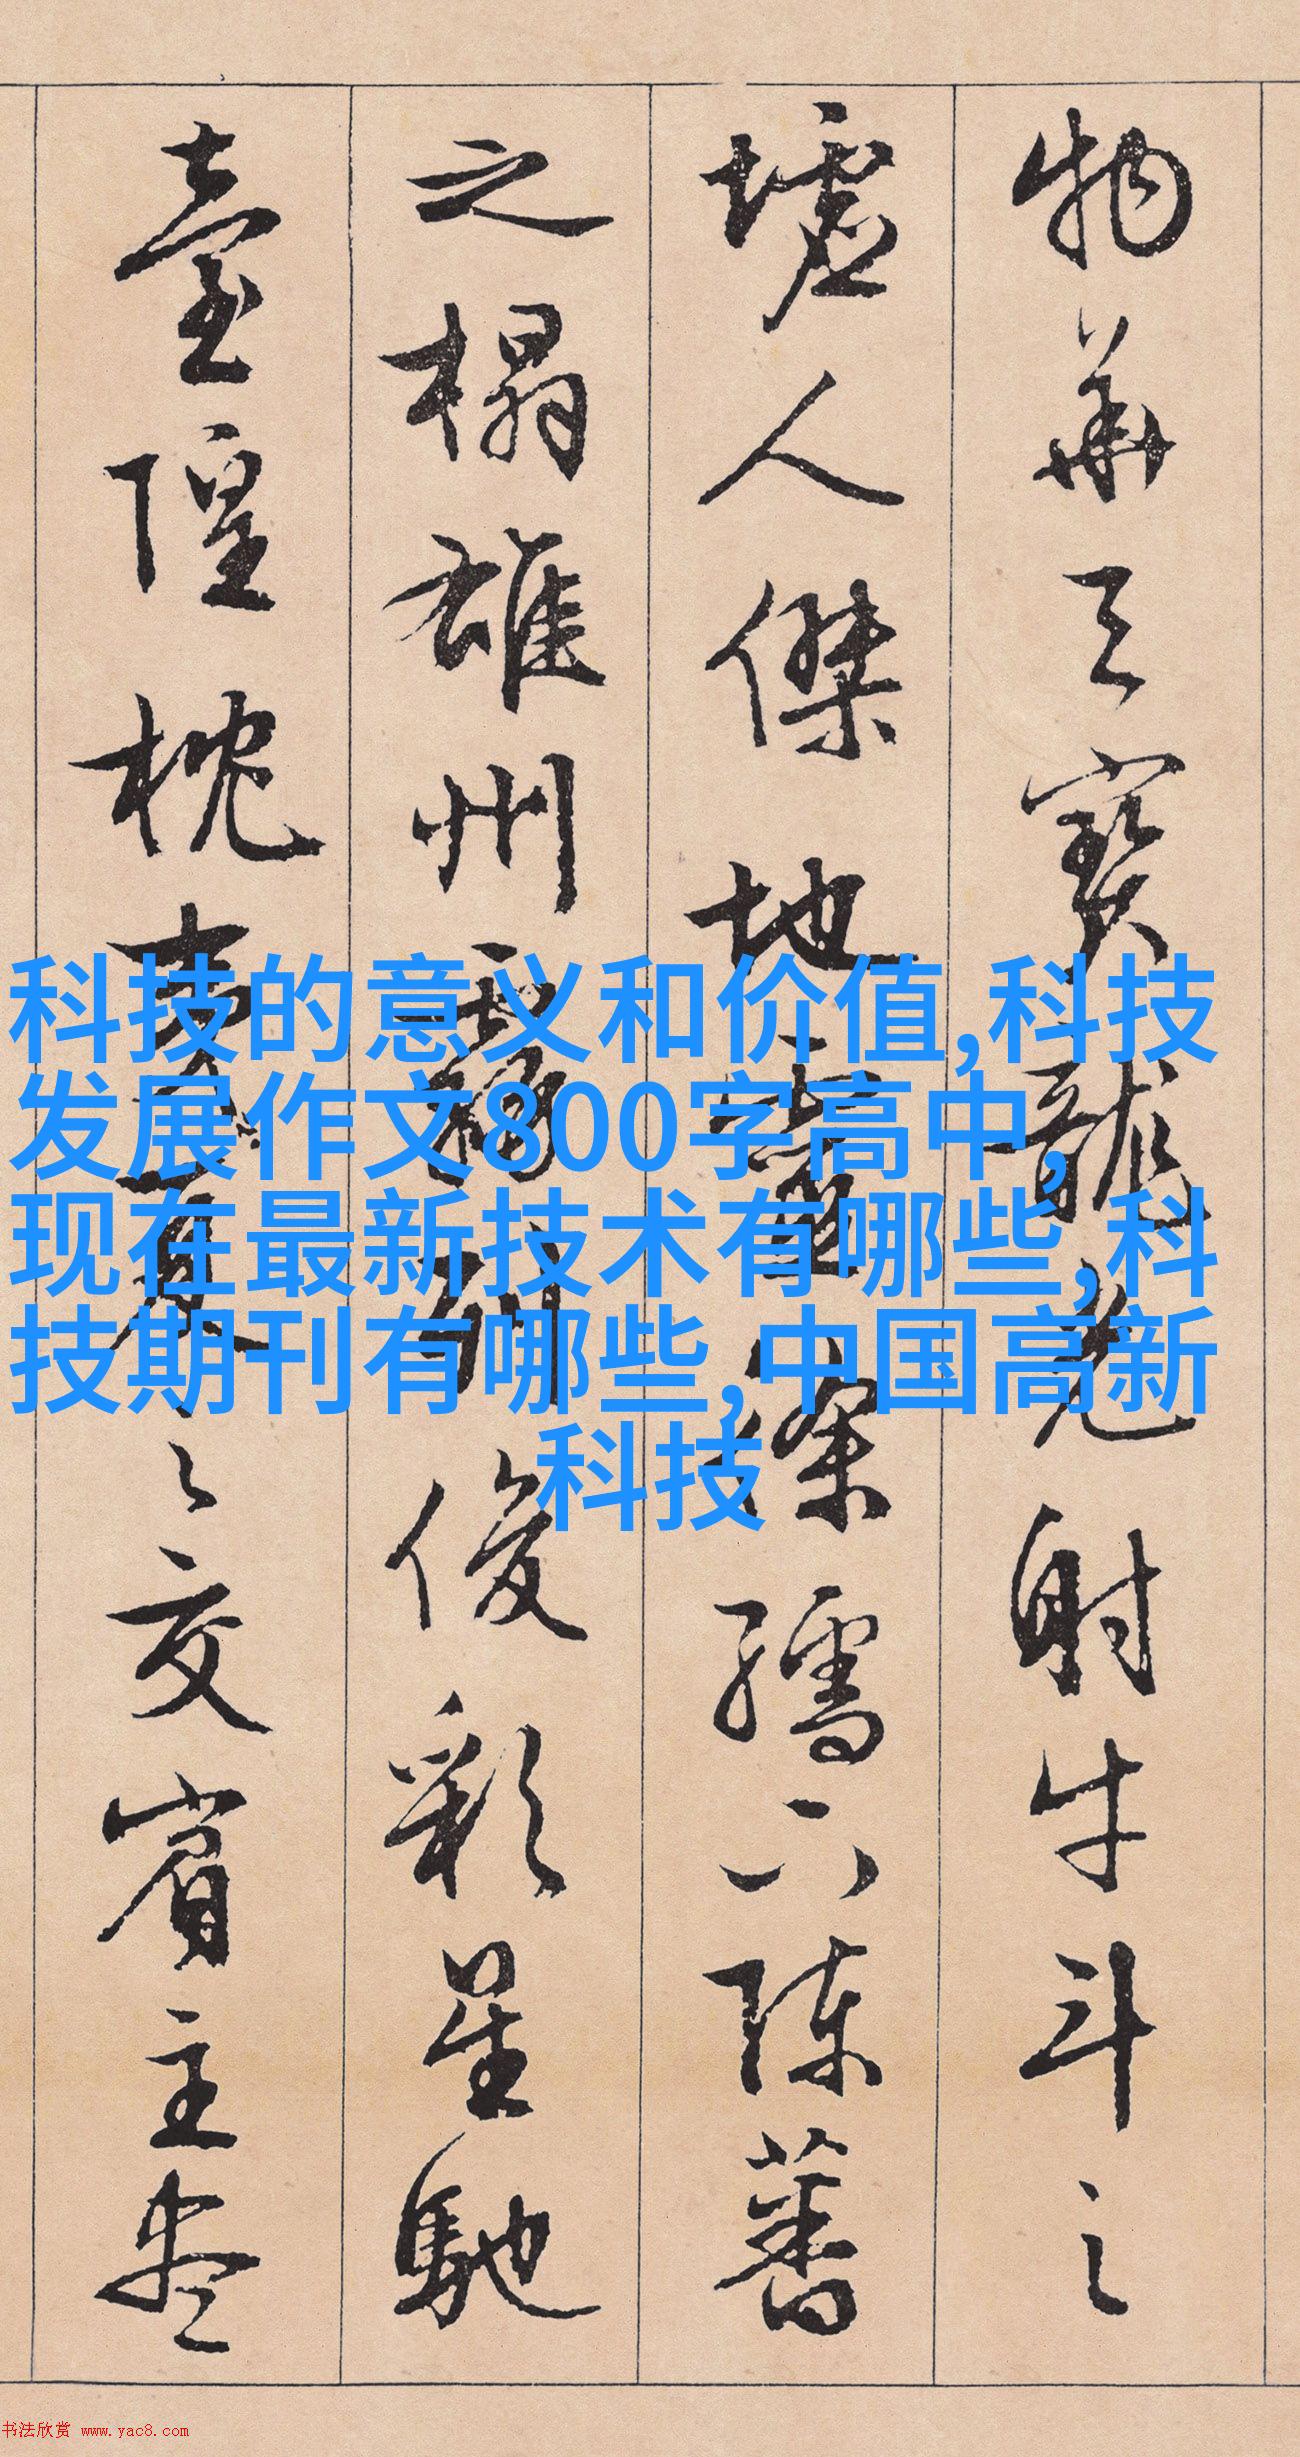 物華天寶龍光射牛斗之
墟人傑地靈徐孺下陳蕃
之榻雄州霧列俊彩星馳
臺隍枕夷夏之交賓主盡
科技的意义和价值,科技
发展作文800字高中,
现在最新技术有哪些,科
技期刊有哪些,中国高新
科技
书法欣赏 www.yac8.com